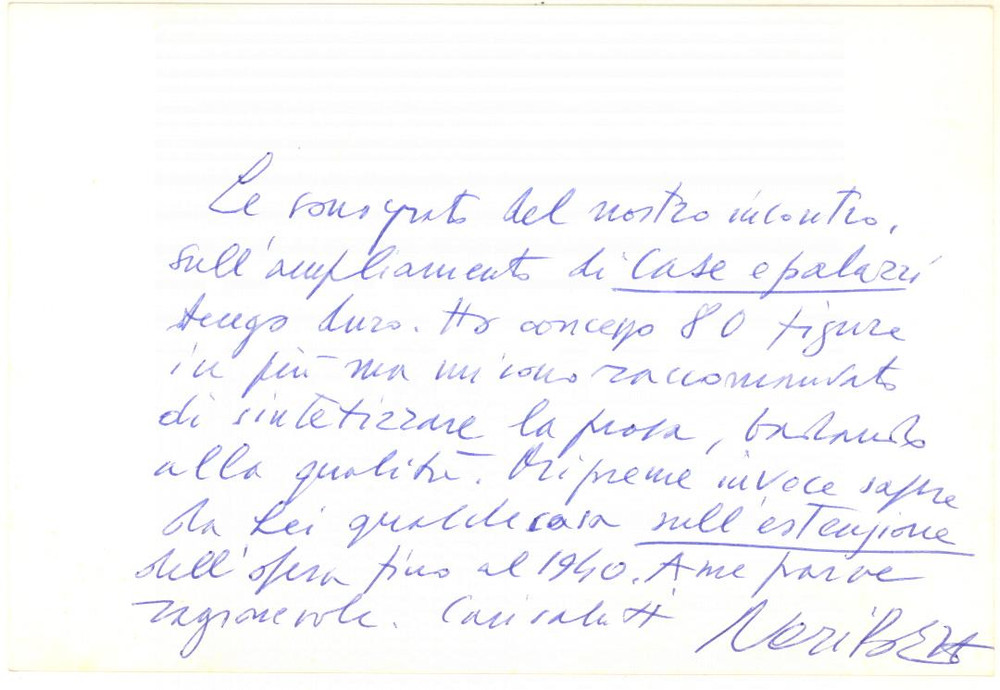 Le sono grato del nostro incontro,
sull'ampliamento di Case e palazzi
tengo duro. Ho concesso 80 figure
in più ma mi sono raccomandato
di sintetizzare la prosa, badando
alla qualità. Mi preme invece sapere
da Lei qualche cosa sull'estensione
dell'opera fino al 1940. A me parve
ragionevole. Cari saluti
Neri Pozza